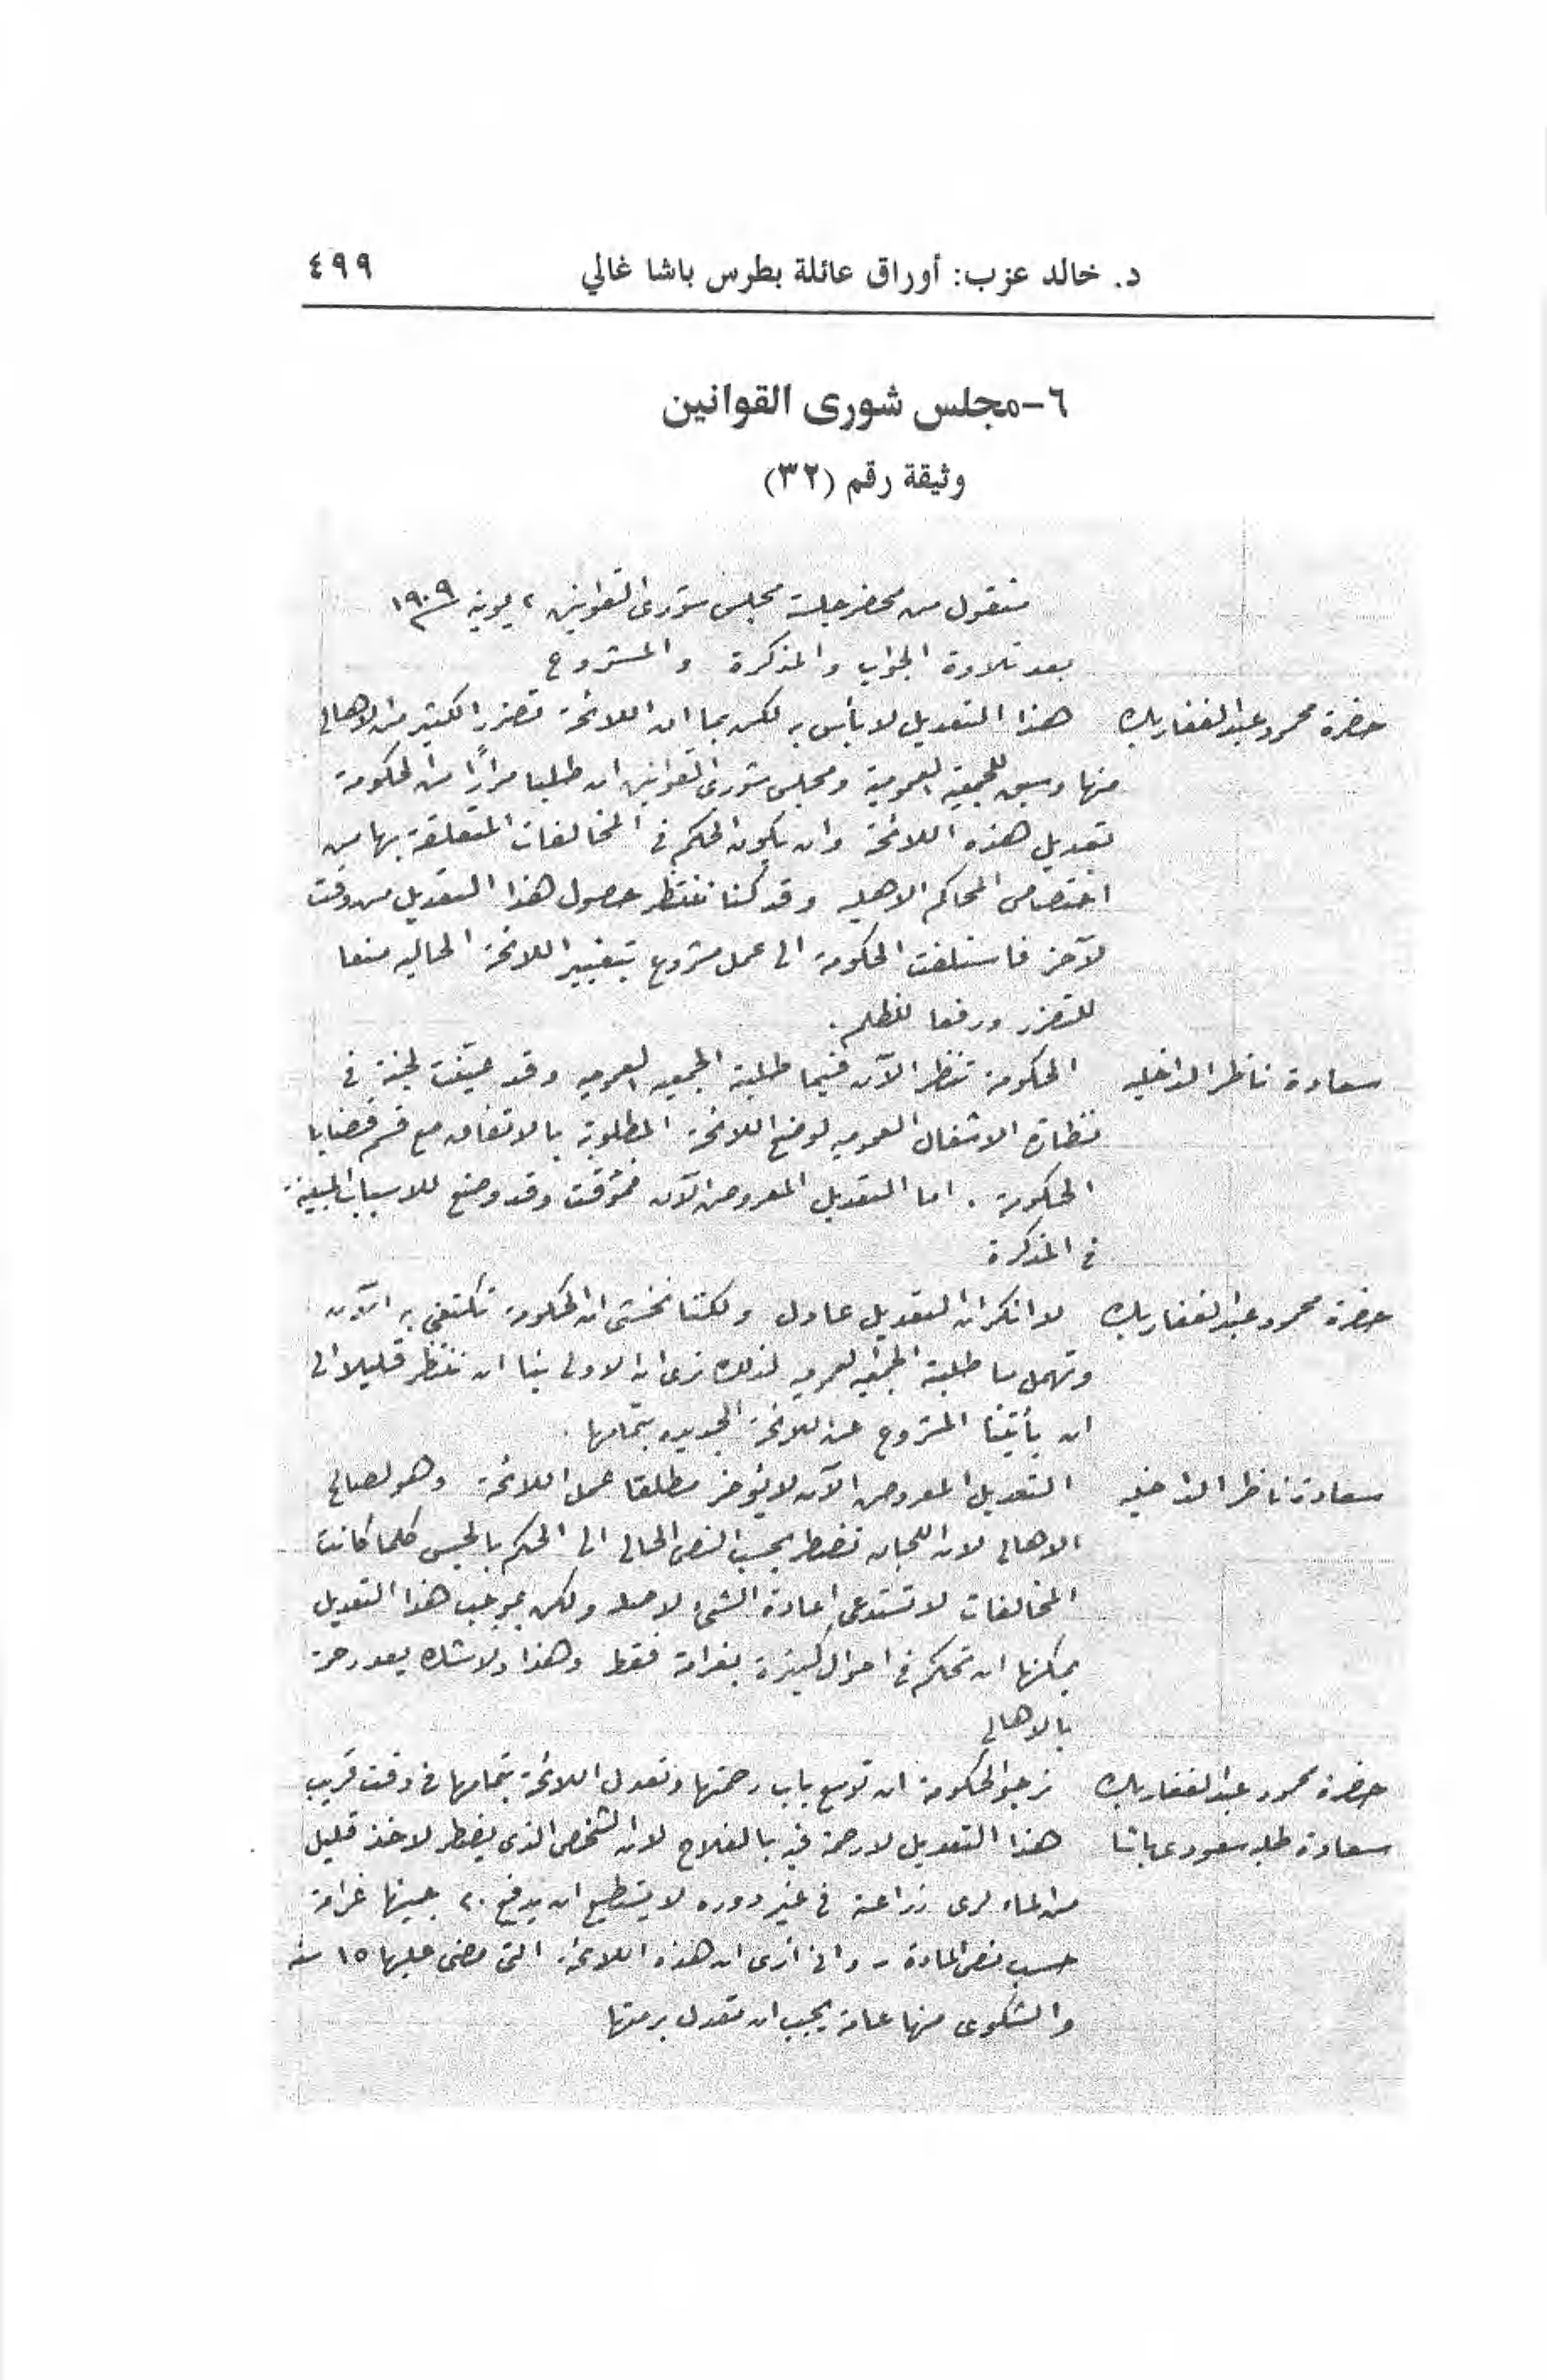 د. خالد عزب: أوراق عائلة بطرس باشا غالي ٤٩٩
٦-مجلس شورى القوانين
وثيقة رقم (٣٢)
منقول من محضر جلسة مجلس شورى القوانين ٢ يونية ١٩٠٩
بعد تلاوة الجواب والمذكرة والمشروع
حضرة محمود عبد الغفار بك هذا التعديل لا بأس به لكن بما ان اللائحة تضرر الكثير من الاهالى
منها وسبق للجمعية العمومية ومجلس شورى القوانين ان طلبا مرارًا من الحكومة
تعديل هذه اللائحة وان يكون الحكم فى المخالفات المتعلقة بها من
اختصاص المحاكم الاهليه وقد كنا ننتظر حصول هذا التعديل من وقت
لآخر فاستلفت الحكومة الى عمل مشروع بتغيير اللائحة الحاليه منعا
للتضرر ورفعا للظلم.
سعادة ناظر الداخليه الحكومة تنظر الآن فيما طلبته الجمعيه العموميه وقد عينت لجنة فى
نظارة الاشغال العموميه لوضع اللائحة المطلوبة بالاتفاق مع قسم قضايا
الحكومة . اما التعديل المعروض الآن فمؤقت وقد وضع للاسباب المبينة
فى المذكرة
حضرة محمود عبد الغفار بك لا انكر ان التعديل عادل ولكننا نخشى ان الحكومة تكتفى به الآن
وتهمل ما طلبته الجمعيه العموميه لذلك نرى ان الاولى بنا ان ننتظر قليلا الى
ان يأتينا المشروع عن اللائحة الجديده بتمامها .
سعادة ناظر الداخليه التعديل المعروض الآن لا يؤخر مطلقا عمل اللائحة وهو لصالح
الاهالى لان اللجان تضطر بحسب النص الحالى الى الحكم بالحبس كلما كانت
المخالفات لا تستدعى إعادة الشئ لاصله ولكن بموجب هذا التعديل
يمكنها ان تحكم فى احوال كثيرة بغرامة فقط وهذا ولا شك يعد رحمة
بالاهالي
حضرة محمود عبد الغفار بك نرجو الحكومة ان توسع باب رحمتها وتعدل اللائحة بتمامها فى وقت قريب
سعادة طلبه سعودى باشا هذا التعديل لا رحمة فيه بالفلاح لان الشخص الذى يضطر لاخذ قليل
من الماء لرى زراعته فى غير دوره لا يستطيع ان يدفع ٢٠ جنيها غرامة
حسب نص المادة - وانى ارى ان هذه اللائحة التى مضى عليها ١٥ سنه
والشكوى منها عامة يجب ان تعدل برمتها